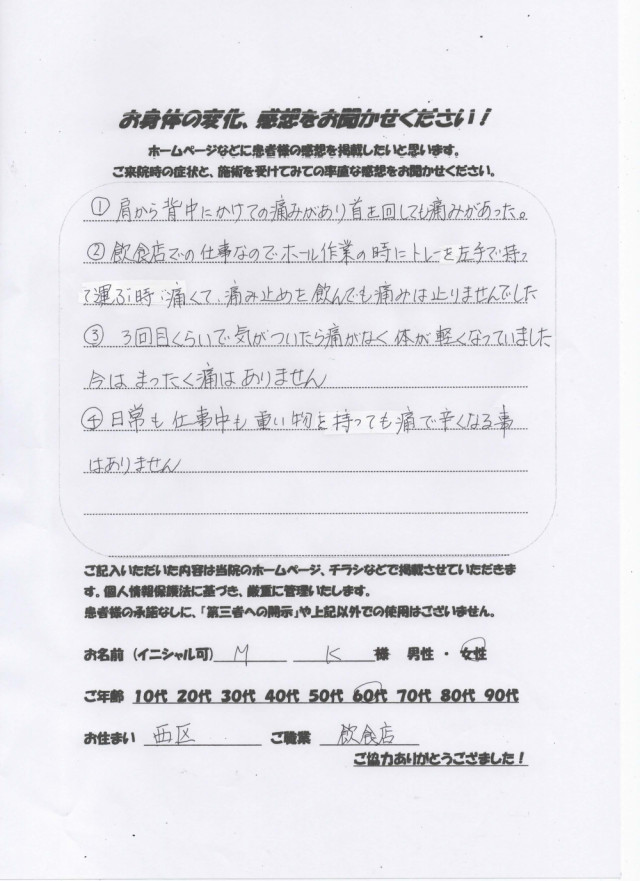 お身体の変化、感想をお聞かせください！
ホームページなどに患者様の感想を掲載したいと思います。
ご来院時の症状と、施術を受けてみての率直な感想をお聞かせください。
① 肩から背中にかけての痛みがあり首を回しても痛みがあった。
② 飲食店での仕事なのでホール作業の時にトレーを左手で持っ
て運ぶ時に痛くて、痛み止めを飲んでも痛みは止りませんでした
③ 3回目くらいで気がついたら痛がなく体が軽くなっていました
今はまったく痛はありません
④ 日常も仕事中も重い物を持っても痛で辛くなる事
はありません
ご記入いただいた内容は当院のホームページ、チラシなどで掲載させていただきま
す。個人情報保護法に基づき、厳重に管理いたします。
患者様の承諾なしに、「第三者への開示」や上記以外での使用はございません。
お名前（イニシャル可） M K 様 男性・女性
ご年齢 10代 20代 30代 40代 50代 60代 70代 80代 90代
お住まい 西区 ご職業 飲食店
ご協力ありがとうござました！